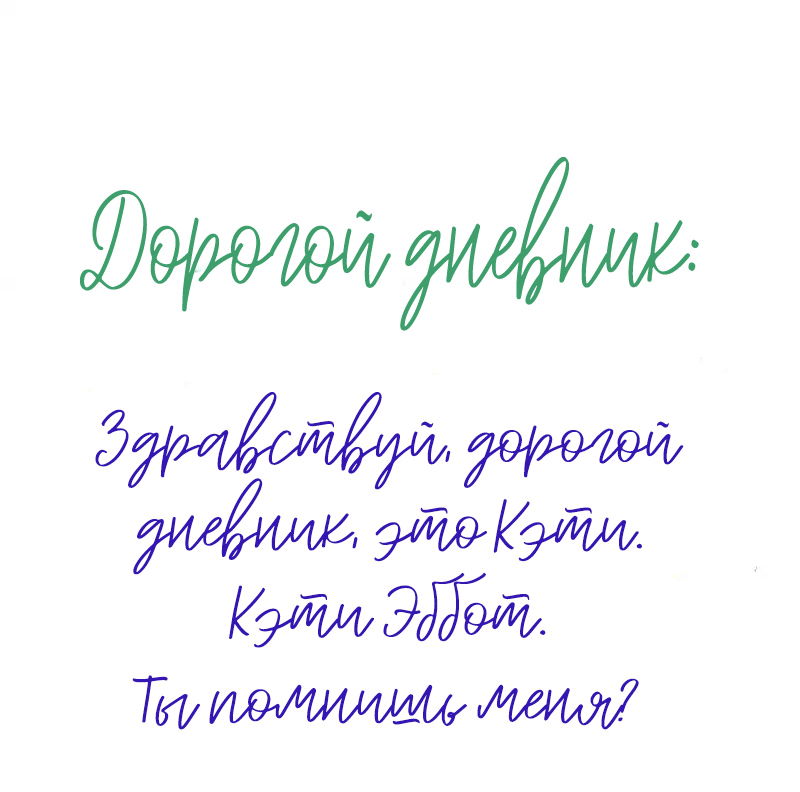 Дорогой дневник:
Здравствуй, дорогой
дневник, это Кэти.
Кэти Эббот.
Ты помнишь меня?